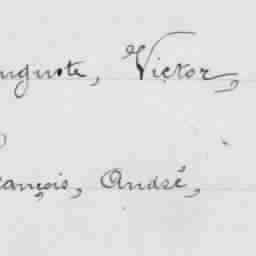 uguste, Victor,
ançois, André,